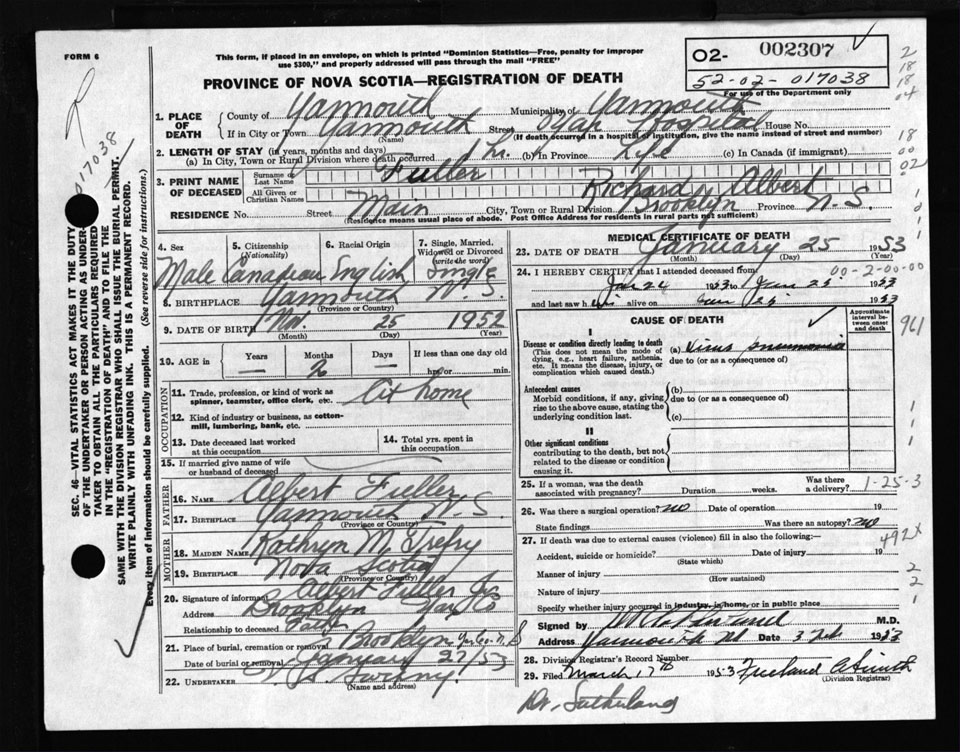 FORM 6
This form, if placed in an envelope, on which is printed "Dominion Statistics—Free, penalty for improper
use $300," and properly addressed will pass through the mail "FREE"
PROVINCE OF NOVA SCOTIA—REGISTRATION OF DEATH
O2- 002307
52-02-017038
For use of the Department only
2
18
18
04
18
00
02
017038
SEC. 46—VITAL STATISTICS ACT MAKES IT THE DUTY
OF THE UNDERTAKER OR PERSON ACTING AS UNDER-
TAKER TO OBTAIN ALL THE PARTICULARS REQUIRED
IN THE "REGISTRATION OF DEATH" AND TO FILE THE
SAME WITH THE DIVISION REGISTRAR WHO SHALL ISSUE THE BURIAL PERMIT.
WRITE PLAINLY WITH UNFADING INK. THIS IS A PERMANENT RECORD.
Every item of information should be carefully supplied. (See reverse side for instructions.)
1. PLACE OF DEATH
County of Yarmouth Municipality of Yarmouth
If in City or Town Yarmouth Street Hospital House No.
(Name) (If death occurred in a hospital or institution, give the name instead of street and number)
2. LENGTH OF STAY (in years, months and days)
(a) In City, Town or Rural Division where death occurred 1 hr. (b) In Province Life (c) In Canada (if immigrant)
3. PRINT NAME OF DECEASED
Surname or Last Name Fuller
All Given or Christian Names Richard Albert
RESIDENCE No. Street Main City, Town or Rural Division Brooklyn Province N.S.
(Residence means usual place of abode. Post Office Address for residents in rural parts not sufficient)
4. Sex
Male
5. Citizenship
(Nationality)
Canadian
6. Racial Origin
English
7. Single, Married, Widowed or Divorced
(write the word)
Single
8. BIRTHPLACE Yarmouth N.S.
(Province or Country)
9. DATE OF BIRTH Nov. 25 1952
(Month) (Day) (Year)
10. AGE in
Years Months Days If less than one day old
— 2 — hrs. or min.
OCCUPATION
11. Trade, profession, or kind of work as
spinner, teamster, office clerk, etc. At home
12. Kind of industry or business, as cotton-
mill, lumbering, bank, etc.
13. Date deceased last worked
at this occupation
14. Total yrs. spent in
this occupation
15. If married give name of wife
or husband of deceased
FATHER
16. NAME Albert Fuller
17. BIRTHPLACE Yarmouth N.S.
(Province or Country)
MOTHER
18. MAIDEN NAME Kathryn M. Trefry
19. BIRTHPLACE Nova Scotia
(Province or Country)
20. Signature of informant Albert Fuller Jr
Address Brooklyn Yar Co
Relationship to deceased Father
21. Place of burial, cremation or removal Brooklyn Yar. Co. N.S
Date of burial or removal January 27/53
22. UNDERTAKER Sweeny
(Name and address)
MEDICAL CERTIFICATE OF DEATH
23. DATE OF DEATH January 25 1953
(Month) (Day)
24. I HEREBY CERTIFY that I attended deceased from 00-2-00-00
Jan 24 1953 to Jan 25 1953
and last saw him alive on Jan 25 1953
CAUSE OF DEATH
Approximate interval between onset and death
961
I
Disease or condition directly leading to death
(This does not mean the mode of dying, e.g., heart failure, asthenia, etc. It means the disease, injury, or complication which caused death.)
(a) Virus pneumonia
due to (or as a consequence of)
Antecedent causes
Morbid conditions, if any, giving rise to the above cause, stating the underlying condition last.
(b)
due to (or as a consequence of)
(c)
II
Other significant conditions
contributing to the death, but not related to the disease or condition causing it.
1
1
1
25. If a woman, was the death
associated with pregnancy? Duration weeks. Was there a delivery? 1-25-3
26. Was there a surgical operation? no Date of operation 19
State findings Was there an autopsy? no
27. If death was due to external causes (violence) fill in also the following:— 492x
Accident, suicide or homicide? Date of injury 19
(State which)
Manner of injury
(How sustained)
Nature of injury
Specify whether injury occurred in industry, in home, or in public place
2
2
1
Signed by M.D.
Address Yarmouth NS Date 3 Feb 1953
28. Division Registrar's Record Number
29. Filed March 17th 1953 Freeland
(Division Registrar)
Dr. Sutherland